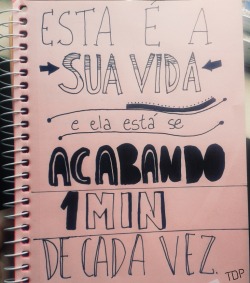 ESTA É A
SUA VIDA
e ela está se
ACABANDO
1 MIN
DE CADA VEZ.
TDP